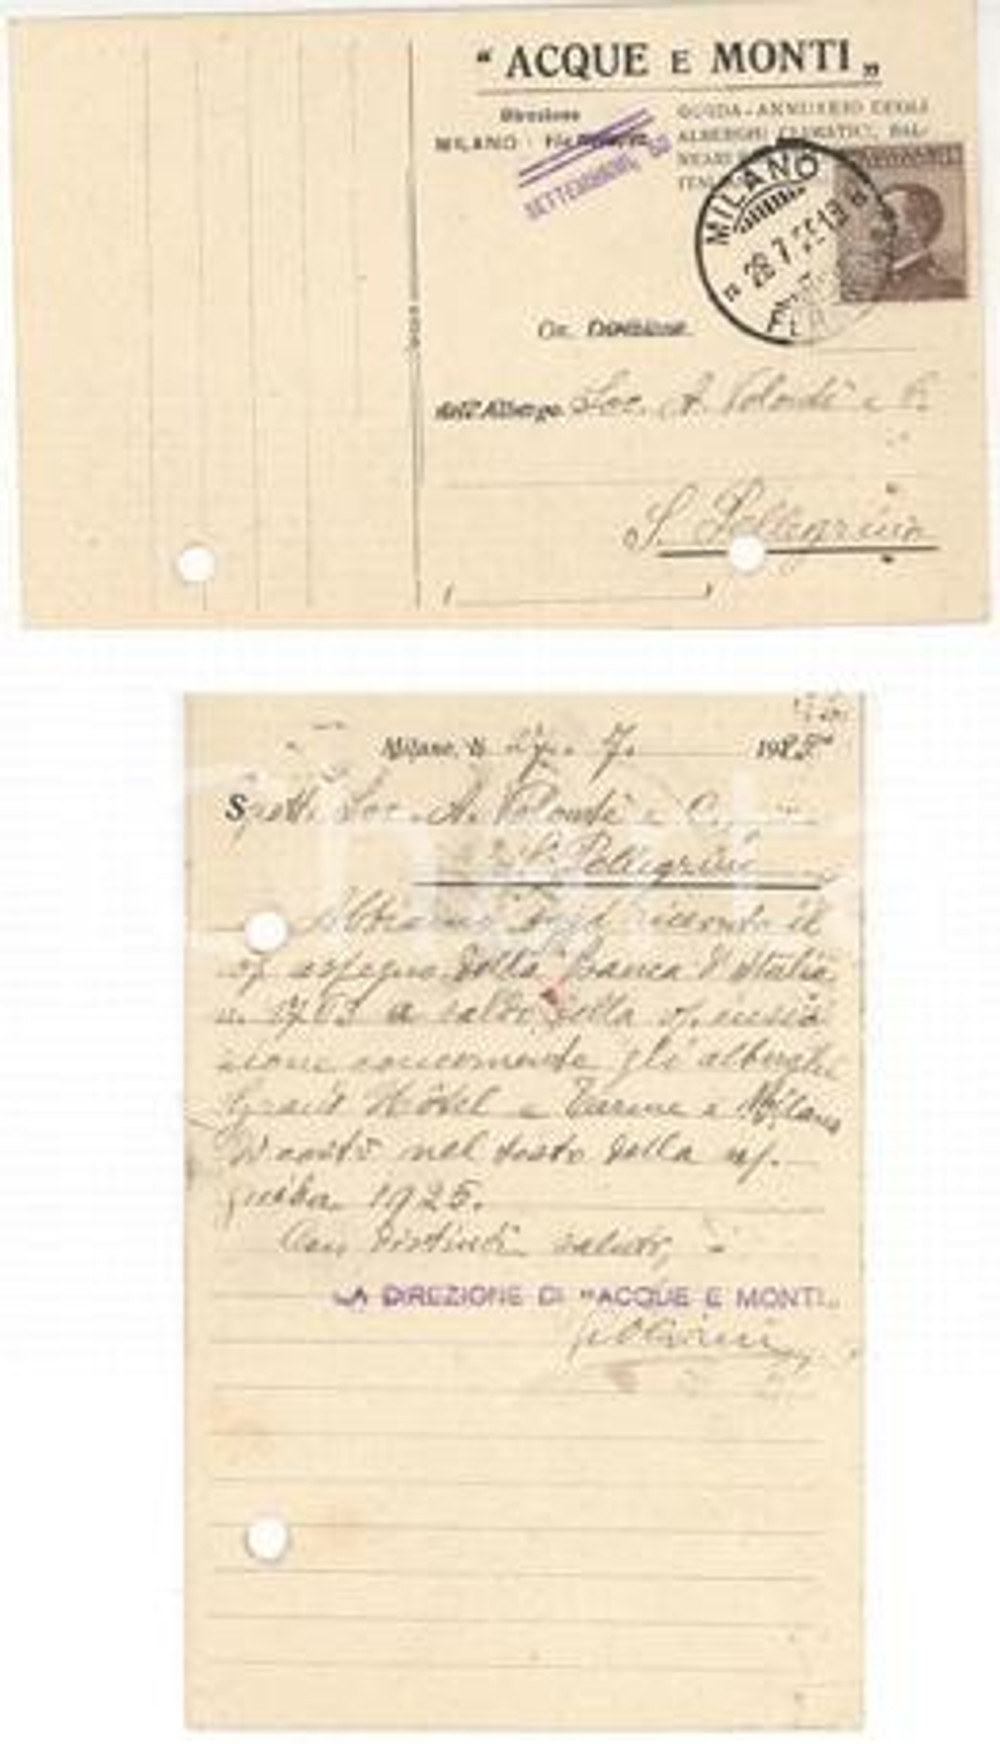 “ ACQUE E MONTI „
Direzione
MILANO
GUIDA-ANNUARIO DEGLI
ALBERGHI CLIMATICI, BAL-
SETTEMBRINI, 60
MILANO
28.7.25.18
On. Direzione
dell'Albergo Soc. A. Volontè e C.
S. Pellegrino
Milano, li 27. 7. 1925
Spett. Soc. A. Volontè e C.
S. Pellegrino
Abbiamo oggi ricevuto il
vs/ assegno della Banca d'Italia
n. 1763 a saldo della vs/ inser
zione concernente gli alberghi
Grand Hôtel e Terme e Milano
di costì nel testo della ns/
guida 1925.
Con distinti saluti,
LA DIREZIONE DI "ACQUE E MONTI„